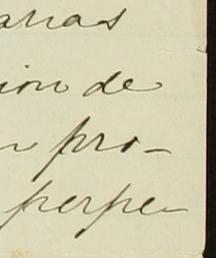 arias
ion de
n pro-
perpe-